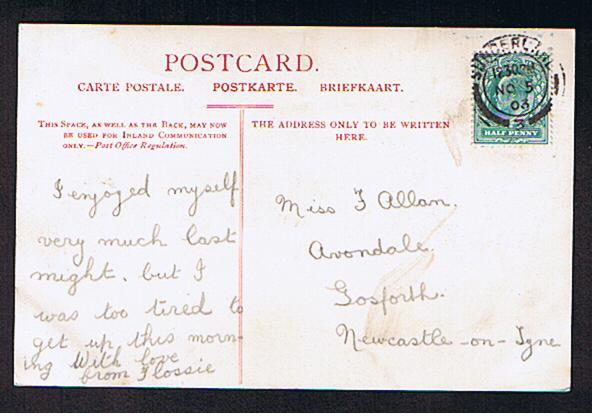 POSTCARD.
CARTE POSTALE. POSTKARTE. BRIEFKAART.
THIS SPACE, AS WELL AS THE BACK, MAY NOW
BE USED FOR INLAND COMMUNICATION
ONLY.—Post Office Regulation.
I enjoyed myself
very much last
night. but I
was too tired to
get up this morn-
ing With love
from Flossie
THE ADDRESS ONLY TO BE WRITTEN
HERE.
Miss F Allan.
Avondale.
Gosforth.
Newcastle-on-Tyne
SUNDERLAND
NO 5
03
HALF PENNY